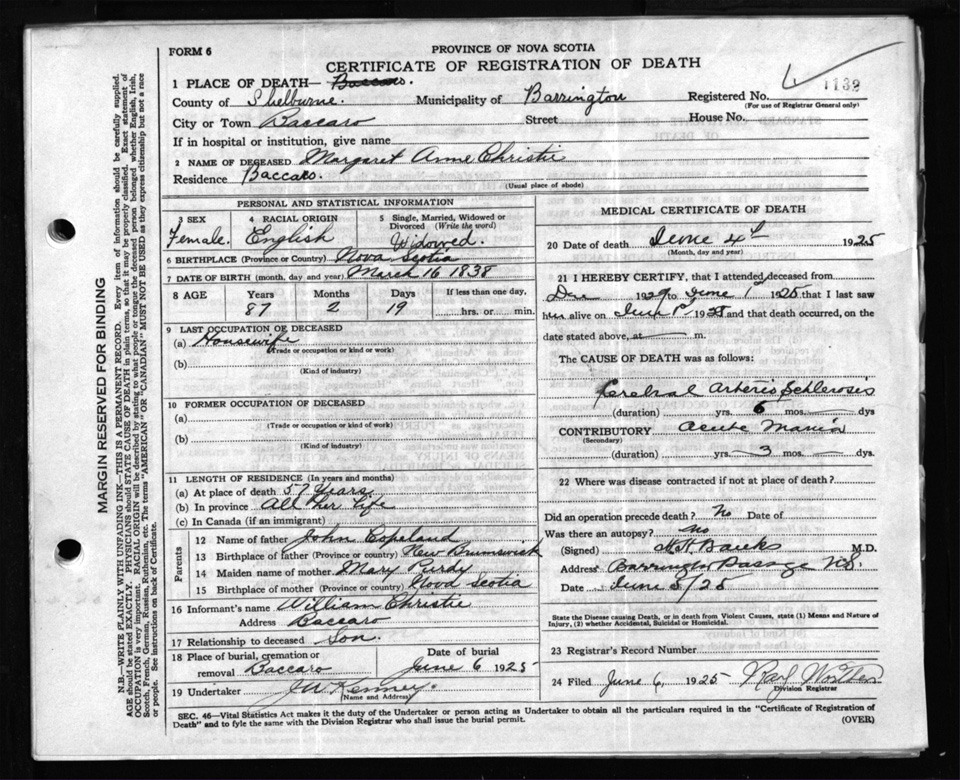 FORM 6
PROVINCE OF NOVA SCOTIA
CERTIFICATE OF REGISTRATION OF DEATH
1 PLACE OF DEATH— Baccaro.
County of Shelburne. Municipality of Barrington Registered No. 1132
(For use of Registrar General only)
City or Town Baccaro Street House No.
If in hospital or institution, give name
2 NAME OF DECEASED Margaret Anne Christie
Residence Baccaro.
(Usual place of abode)
PERSONAL AND STATISTICAL INFORMATION
3 SEX 4 RACIAL ORIGIN 5 Single, Married, Widowed or Divorced (Write the word)
Female. English Widowed.
6 BIRTHPLACE (Province or Country) Nova Scotia
7 DATE OF BIRTH (month, day and year) March 16 1838
8 AGE Years Months Days If less than one day,
87 2 19 hrs. or min.
9 LAST OCCUPATION OF DECEASED
(a) Housewife
(Trade or occupation or kind or work)
(b)
(Kind of industry)
10 FORMER OCCUPATION OF DECEASED
(a)
(Trade or occupation or kind of work)
(b)
(Kind of industry)
11 LENGTH OF RESIDENCE (In years and months)
(a) At place of death 57 Years
(b) In province All Her Life
(c) In Canada (if an immigrant)
Parents
12 Name of father John Copeland
13 Birthplace of father (Province or country) New Brunswick
14 Maiden name of mother Mary Purdy
15 Birthplace of mother (Province or country) Nova Scotia
16 Informant's name William Christie
Address Baccaro
17 Relationship to deceased Son.
18 Place of burial, cremation or removal Baccaro
Date of burial June 6 1925
19 Undertaker J W Kenney.
(Name and Address)
MEDICAL CERTIFICATE OF DEATH
20 Date of death June 4th 1925
(Month, day and year)
21 I HEREBY CERTIFY, that I attended deceased from
Dec 1924 to June 1st 1925 that I last saw
her alive on 1925 and that death occurred, on the
date stated above, at m.
The CAUSE OF DEATH was as follows:
Cerebral Arterio Schlerosis
(duration) yrs. 6 mos. dys
CONTRIBUTORY Acute Mania
(Secondary)
(duration) yrs. 3 mos. dys.
22 Where was disease contracted if not at place of death?
Did an operation precede death? No Date of
Was there an autopsy? No
(Signed) M.D.
Address Barrington Passage NS.
Date June 5/25
State the Disease causing Death, or in death from Violent Causes, state (1) Means and Nature of
Injury, (2) whether Accidental, Suicidal or Homicidal.
23 Registrar's Record Number
24 Filed June 6, 1925
Division Registrar
SEC. 46—Vital Statistics Act makes it the duty of the Undertaker or person acting as Undertaker to obtain all the particulars required in the "Certificate of Registration of
Death" and to fyle the same with the Division Registrar who shall issue the burial permit. (OVER)
MARGIN RESERVED FOR BINDING
N.B.—WRITE PLAINLY WITH UNFADING INK—THIS IS A PERMANENT RECORD. Every item of information should be carefully supplied.
AGE should be stated EXACTLY. PHYSICIANS should STATE CAUSE OF DEATH in plain terms, so that it may be properly classified. Exact statement of
OCCUPATION is very important. RACIAL ORIGIN will be described by stating to what people or tongue the deceased person belonged whether English, Irish,
Scotch, French, German, Russian, Ruthenian, etc. The terms "AMERICAN" OR "CANADIAN" MUST NOT BE USED as they express citizenship but not a race
or people. See instructions on back of Certificate.